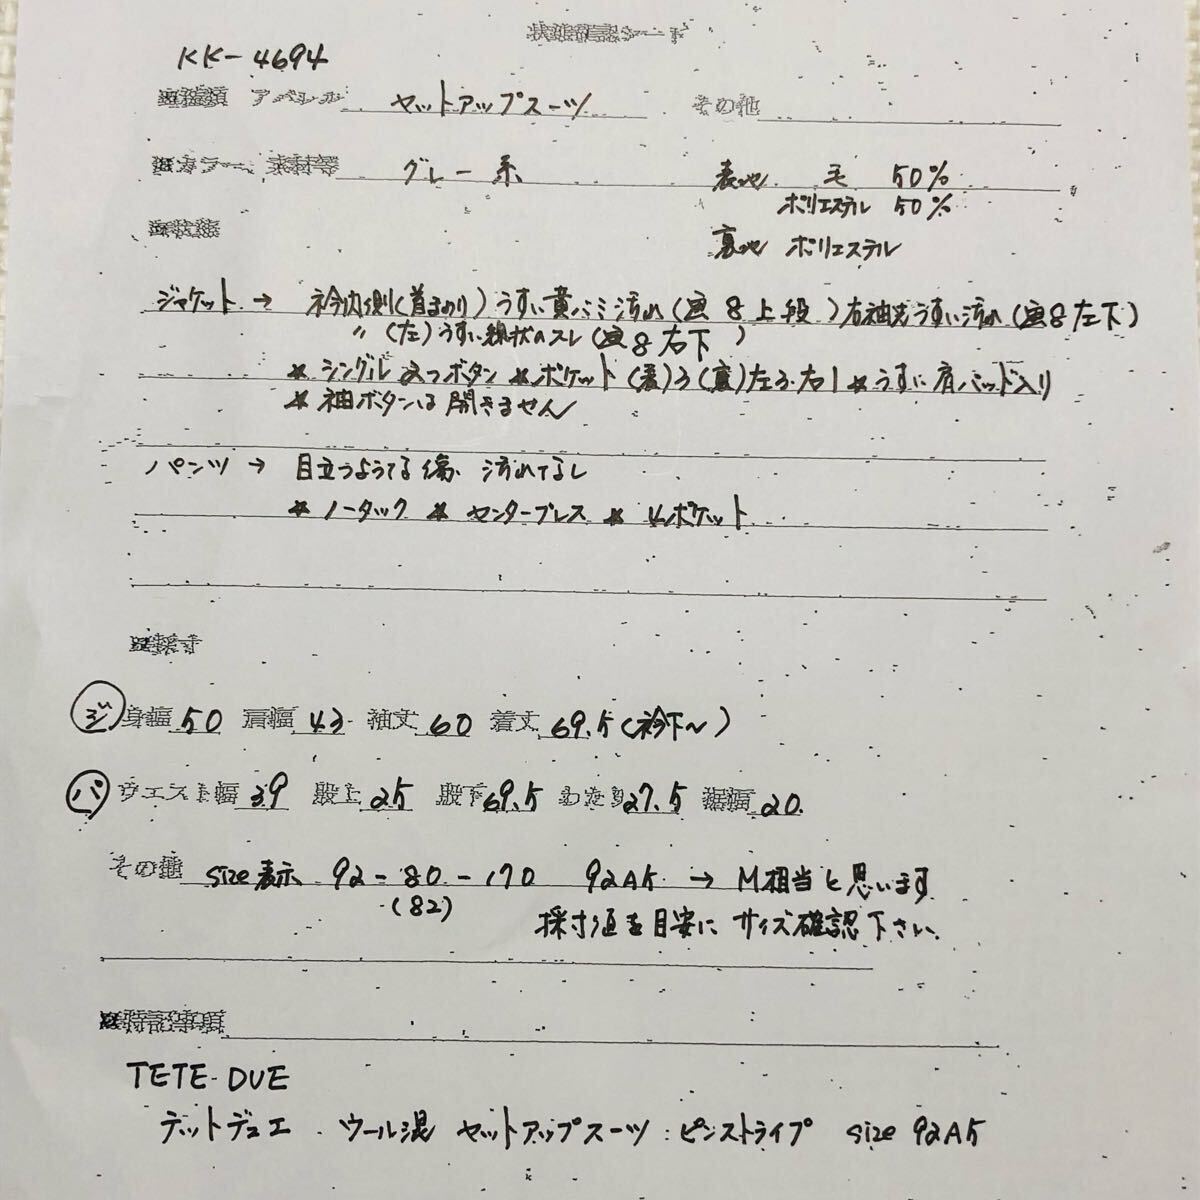 状態確認シート
KK-4694
アパレル セットアップスーツ その他
カラー 素材等 グレー系 表地 毛 50%
ポリエステル 50%
裏地 ポリエステル
ジャケット → 衿内側(首まわり)うすい黄バミ汚れ(画8上段)右袖先うすい汚れ(画8左下)
〃(左)うすい線状のスレ(画8右下)
* シングル 2つボタン * ポケット(表)3(裏)左3.右1 * うすい肩パッド入り
* 袖ボタンは開きません
パンツ → 目立つような傷、汚れなし
* ノータック * センタープレス * 4ポケット
採寸
ジ 身幅 50 肩幅 43 袖丈 60 着丈 69.5(衿下~)
パ ウエスト幅 39 股上 25 股下 69.5 わたり 27.5 裾幅 20.
その他 size表示 92-80-170 92A5 → M相当と思います
(82)
採寸値を目安に サイズ確認下さい。
特記事項
TETE-DUE
テットデュエ ウール混 セットアップスーツ ピンストライプ size 92A5